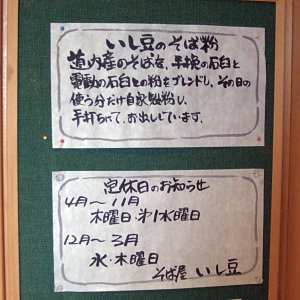 いし豆のそば粉
道内産のそばを、手挽の石臼と
電動の石臼との粉をブレンドし、その日の
使う分だけ自家製粉し、
手打ちにて、お出ししています。
定休日のお知らせ
4月〜11月
木曜日・第1水曜日
12月〜3月
水・木曜日
そば屋 いし豆